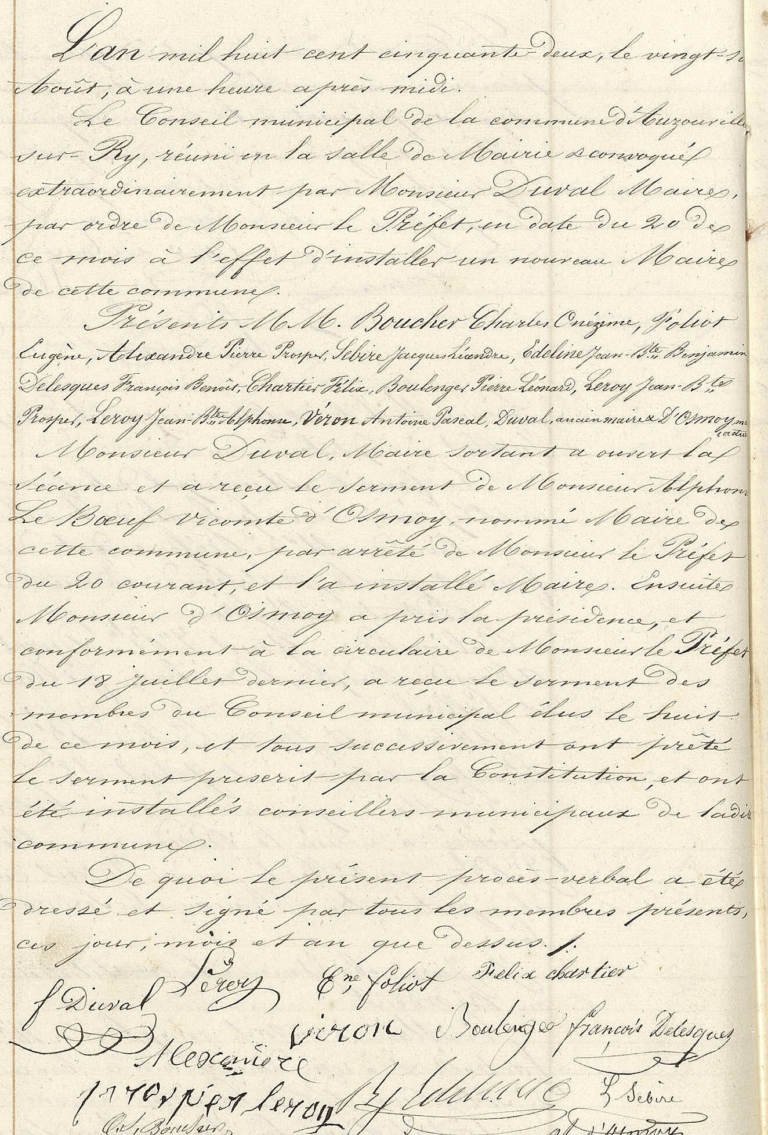 L'an mil huit cent cinquante-deux, le vingt-s
Août, à une heure après midi.
Le Conseil municipal de la commune d'Auzouville
sur-Ry, réuni en la salle de Mairie & convoqué
extraordinairement par Monsieur Duval Maire,
par ordre de Monsieur le Préfet, en date du 20 de
ce mois à l'effet d'installer un nouveau Maire
de cette commune.
Présents M.M. Boucher Charles Onézime, Foliot
Eugène, Alexandre Pierre Prosper, Sebire Jacques Léandre, Edeline Jean-Bte Benjamin
Delesques François Benoît, Chartier Félix, Boulenger Pierre Léonard, Leroy Jean-Bte
Prosper, Leroy Jean-Bte Alphonse, Véron Antoine Pascal, Duval, ancien maire & D'Osmoy
Monsieur Duval, Maire sortant a ouvert la
séance et a reçu le serment de Monsieur Alphons
Le Bœuf vicomte d'Osmoy, nommé Maire de
cette commune, par arrêté de Monsieur le Préfet
du 20 courant, et l'a installé Maire. Ensuite
Monsieur d'Osmoy a pris la présidence, et
conformément à la circulaire de Monsieur le Préfet
du 18 juillet dernier, a reçu le serment des
membres du Conseil municipal élus le huit
de ce mois, et tous successivement ont prêté
le serment prescrit par la Constitution, et ont
été installés conseillers municipaux de ladit
commune.
De quoi le présent procès-verbal a été
dressé et signé par tous les membres présents,
ces jour, mois et an que dessus.
f Duval Leroy Ene foliot Felix chartier
veron Boulenger françois Delesques
Alexandre
prosper leroy Edeline L Sebire
Boucher d'Osmoy